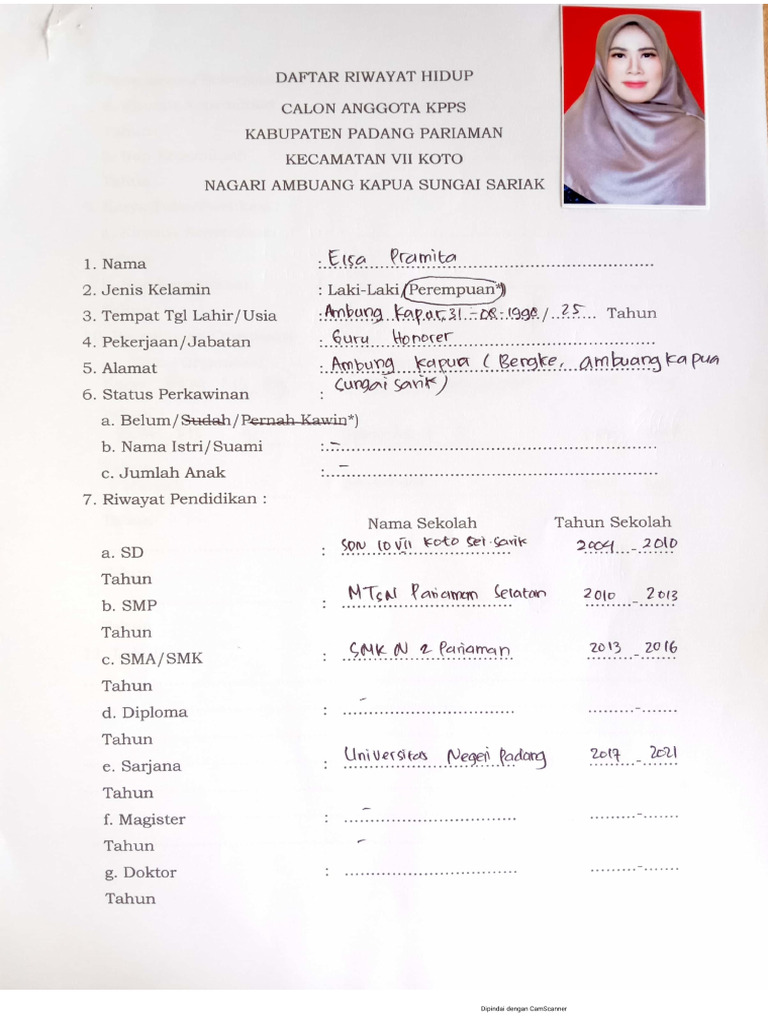 DAFTAR RIWAYAT HIDUP
CALON ANGGOTA KPPS
KABUPATEN PADANG PARIAMAN
KECAMATAN VII KOTO
NAGARI AMBUANG KAPUA SUNGAI SARIAK
1. Nama : Elsa Pramita
2. Jenis Kelamin : Laki-Laki/Perempuan*)
3. Tempat Tgl Lahir/Usia : Ambung Kapar, 31-08-1998 / 25 Tahun
4. Pekerjaan/Jabatan : Guru Honorer
5. Alamat : Ambung Kapua (Bengke, ambuang kapua
sungai sarik)
6. Status Perkawinan :
a. Belum/Sudah/Pernah Kawin*)
b. Nama Istri/Suami : -
c. Jumlah Anak : -
7. Riwayat Pendidikan :
Nama Sekolah Tahun Sekolah
a. SD : SDN 10 VII Koto Sei-Sarik 2004 - 2010
Tahun
b. SMP : MTsN Pariaman Selatan 2010 - 2013
Tahun
c. SMA/SMK : SMK N 2 Pariaman 2013 - 2016
Tahun
d. Diploma : - -
Tahun
e. Sarjana : Universitas Negeri Padang 2017 - 2021
Tahun
f. Magister : - -
Tahun -
g. Doktor : -
Tahun
Dipindai dengan CamScanner